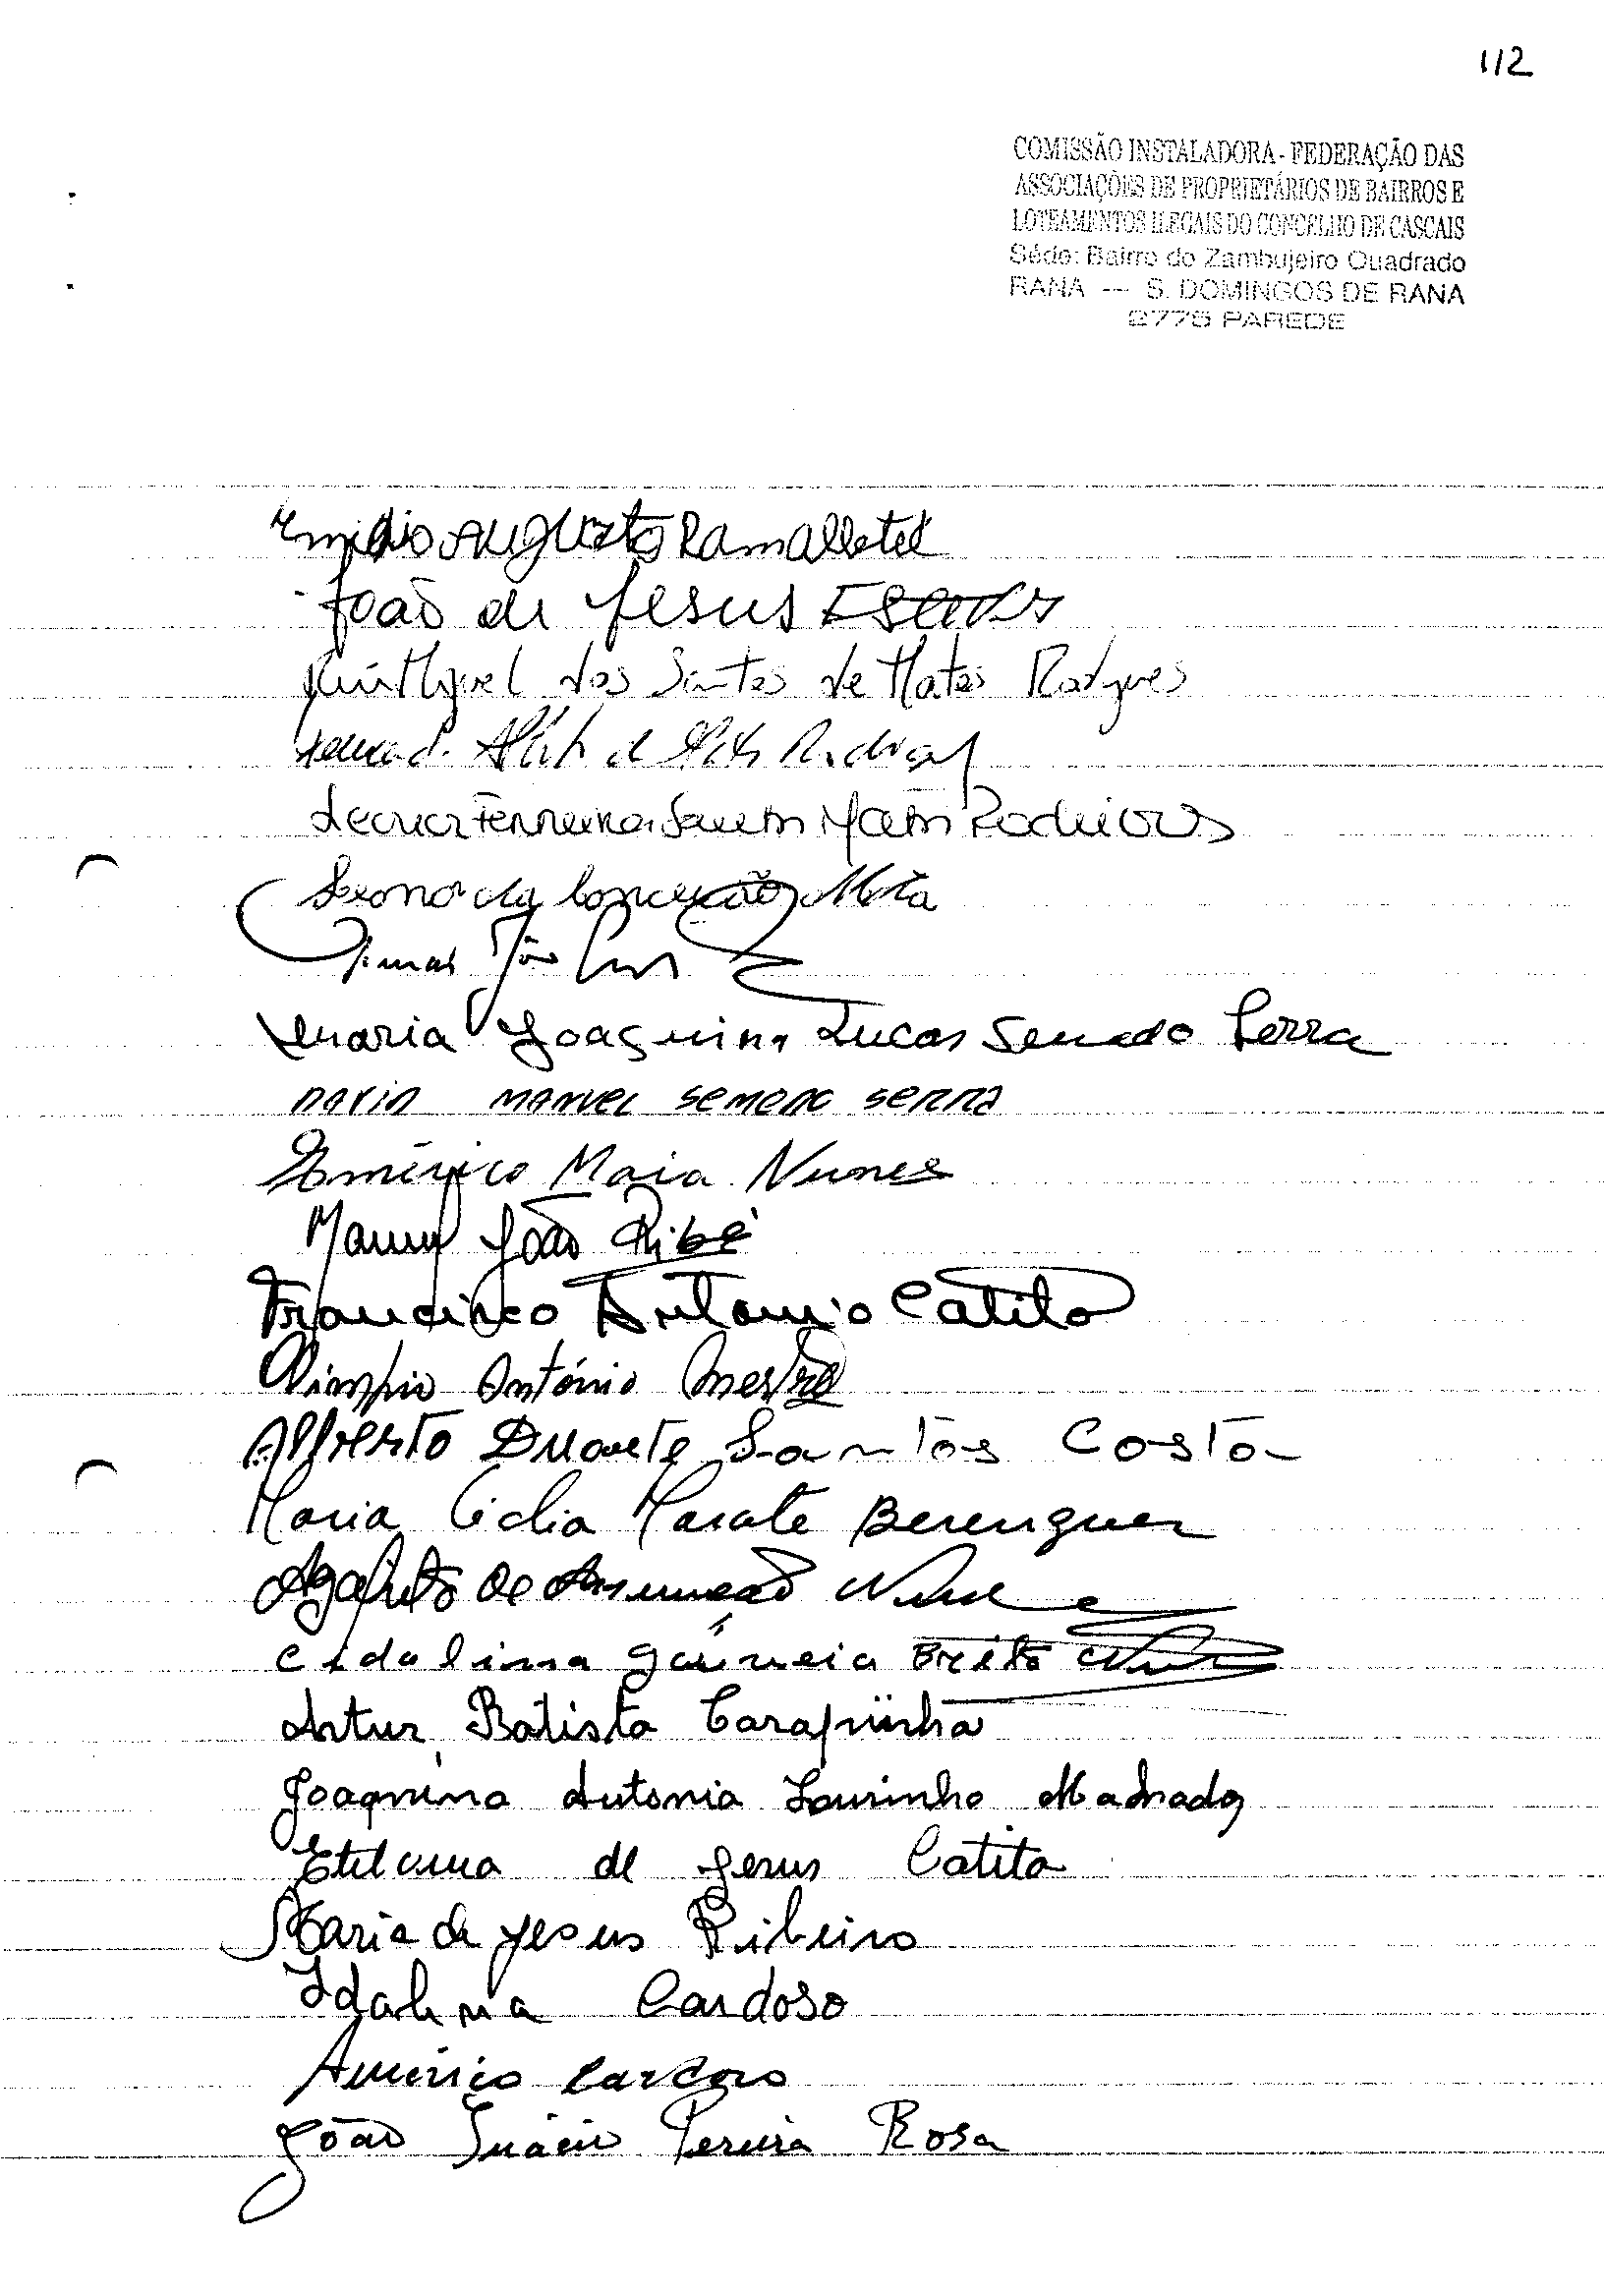 112
COMISSÃO INSTALADORA - FEDERAÇÃO DAS
ASSOCIAÇÕES DE PROPRIETÁRIOS DE BAIRROS E
LOTEAMENTOS ILEGAIS DO CONCELHO DE CASCAIS
Séde: Bairro do Zambujeiro Quadrado
RANA --- S. DOMINGOS DE RANA
2775 PAREDE
Emidio Augusto
João de Jesus
Rui Miguel dos Santos de Matos Rodrigues
de
Ferreira Matos Rodrigues
Leonor da Conceição Mota
João
Maria Joaquina Lucas Semedo Serra
MANUEL SEMEDO SERRA
Américo Maia Nunes
Manuel João
Francisco Antonio Catito
Olimpio António
Alberto Duarte Santos Costa
Maria Berenguer
de Assunção
Cidalina Brito
Artur Batista Carapinha
Joaquina Antonia Lourinho
de Jesus Catita
Maria de Jesus Ribeiro
Idalina Cardoso
Américo Cardoso
João Inácio Pereira Rosa